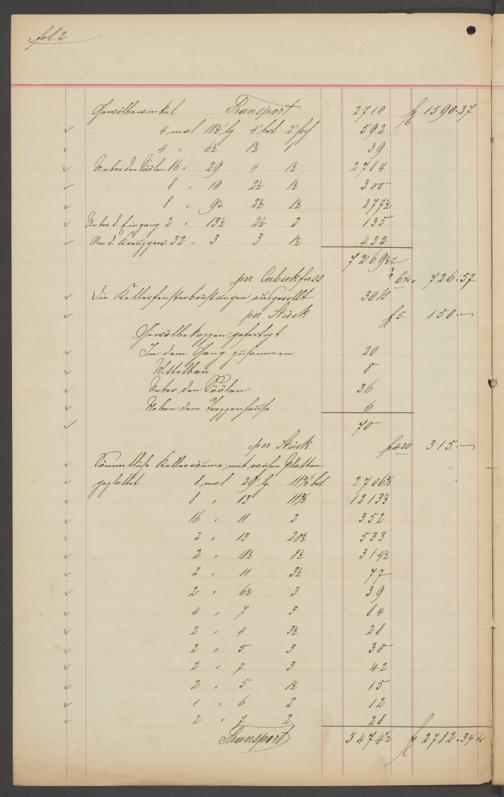 fol. 2
Gewölbewinkel Transport 2710 f 1590.37
4 mal 18½ lg 4' brt 2' hoch 592
4 " 6½ 1½ 39
Unter den Säulen 16 " 29 4 1½ 2784
8 " 10 2½ 1½ 300
8 " 9¼ 2½ 1½ 277½
Unter d. Eingang 2 " 13½ 2½ 2 135
32 " 3 3 1½ 432
7269½
per Cubickfuss 726.57
Die Kellerfensterbrüstungen 30
per Stück f 5. 150.—
Gewölbekappen gefertigt
In dem Gang zusammen 20
Mittelbau 8
Unter den Säulen 36
Neben dem Treppenhause 6
70
per Stück f 4.30 315.—
Sämmtliche Kellerräume mit Platten
geplattet 8 mal 29' lg 11⅔ brt 2706⅔
8 " 13 11⅔ 1213⅓
16 " 11 2 352
2 " 13 20½ 533
2 " 18½ 8½ 314½
2 " 11 3½ 77
2 " 6½ 3 39
4 " 7 3 84
2 " 4 3½ 28
2 " 5 3 30
2 " 7 3 42
2 " 5 1½ 15
1 " 6 2 12
2 " 7 2 28
Transport 5474½ f 2782.34